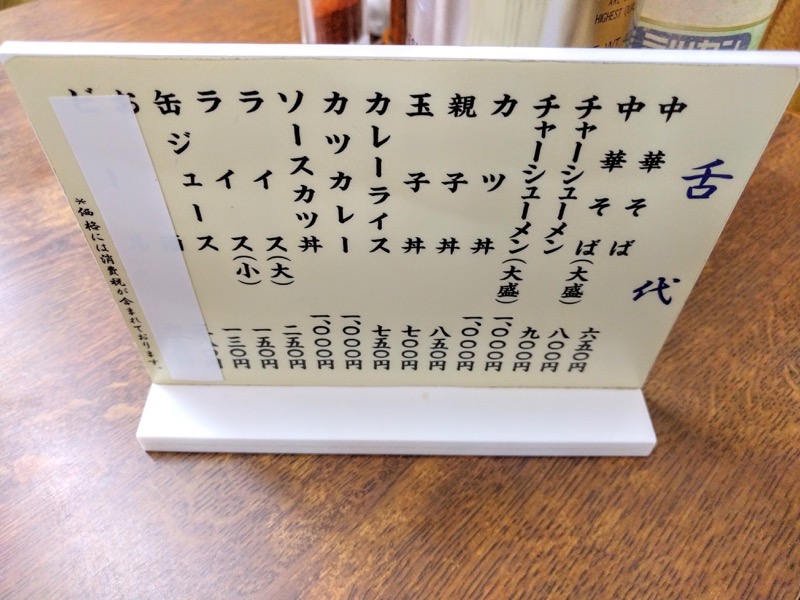 舌代
中華そば 六五〇円
中華そば(大盛) 八〇〇円
チャーシューメン 九〇〇円
チャーシューメン(大盛) 一、〇〇〇円
カツ丼 一、〇〇〇円
親子丼 八五〇円
玉子丼 七〇〇円
カレーライス 七五〇円
カツカレー 一、〇〇〇円
ソースカツ丼 一、〇〇〇円
ライス(大) 二五〇円
ライス(小) 一五〇円
缶ジュース 一三〇円
※価格には消費税が含まれております。
HIGHEST